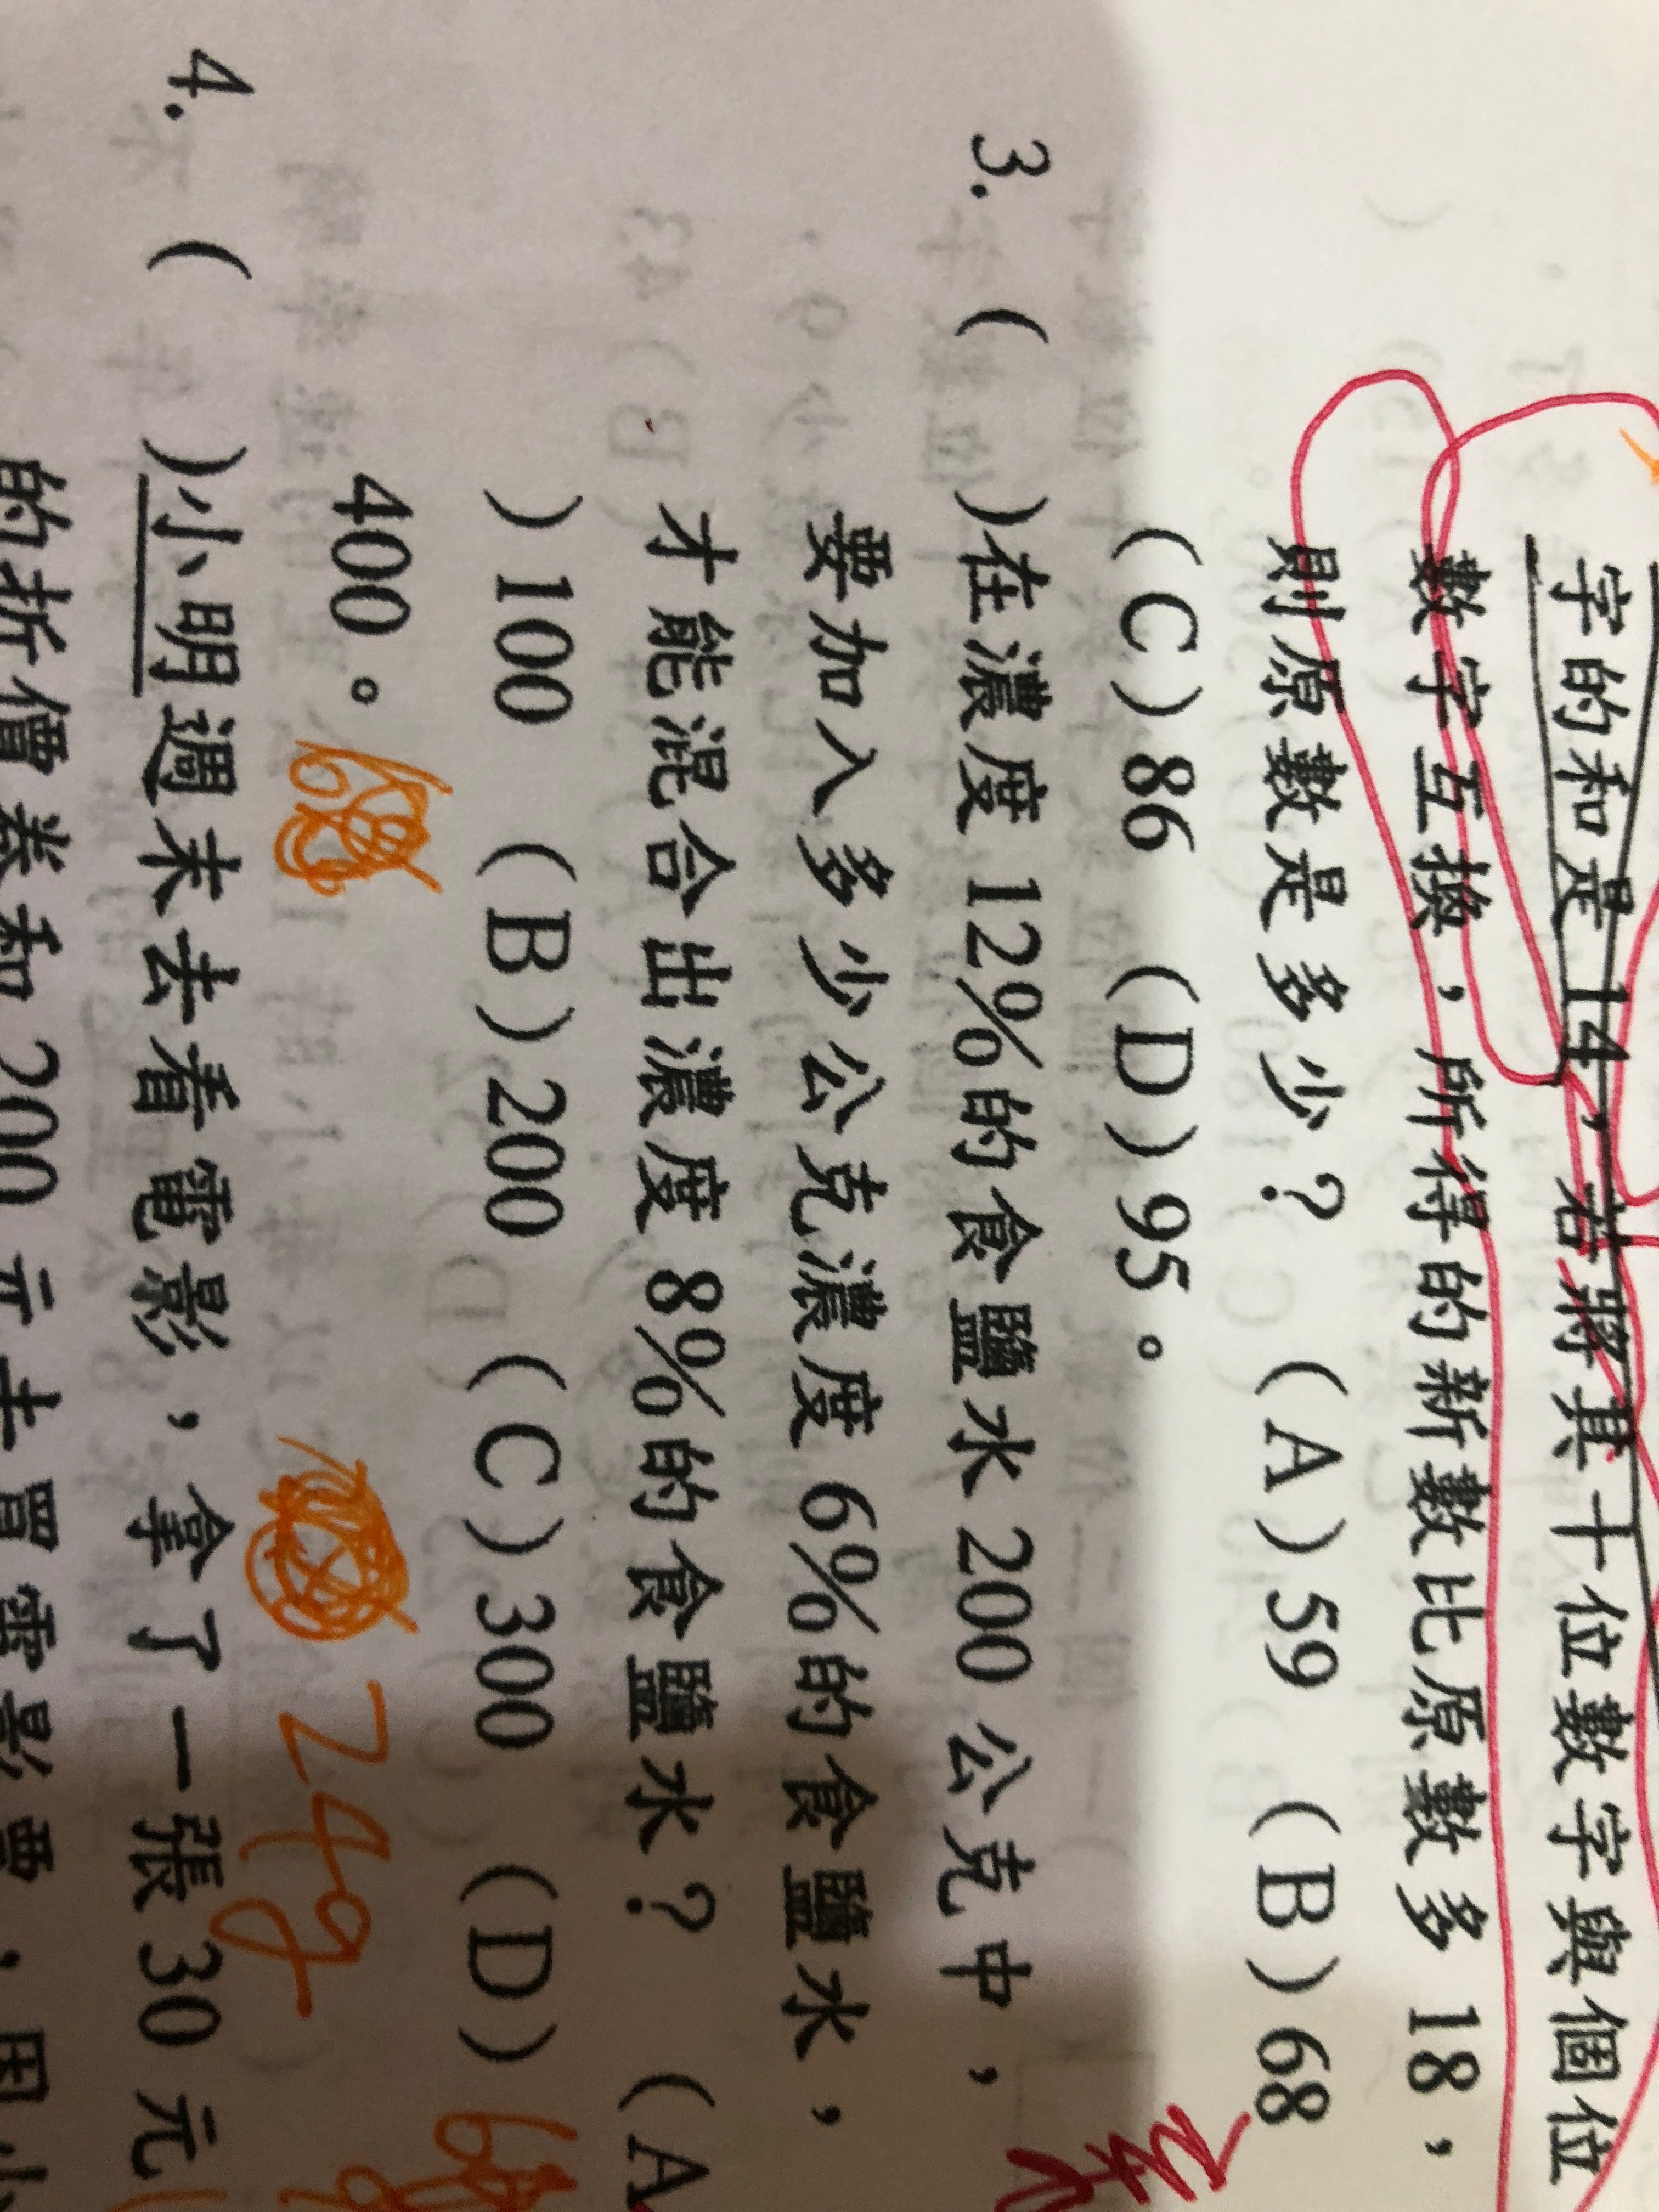 字的和是 14，若將其十位數字與個位
數字互換，所得的新數比原數多 18，
則原數是多少？ (A)59 (B)68
(C)86 (D)95。
3. ( )在濃度 12%的食鹽水 200 公克中，
要加入多少公克濃度 6%的食鹽水，
才能混合出濃度 8%的食鹽水？ (A
)100 (B)200 (C)300 (D)
400。
24g
4. ( )小明週末去看電影，拿了一張 30 元
的折價券和 200 元去買電影票，因小